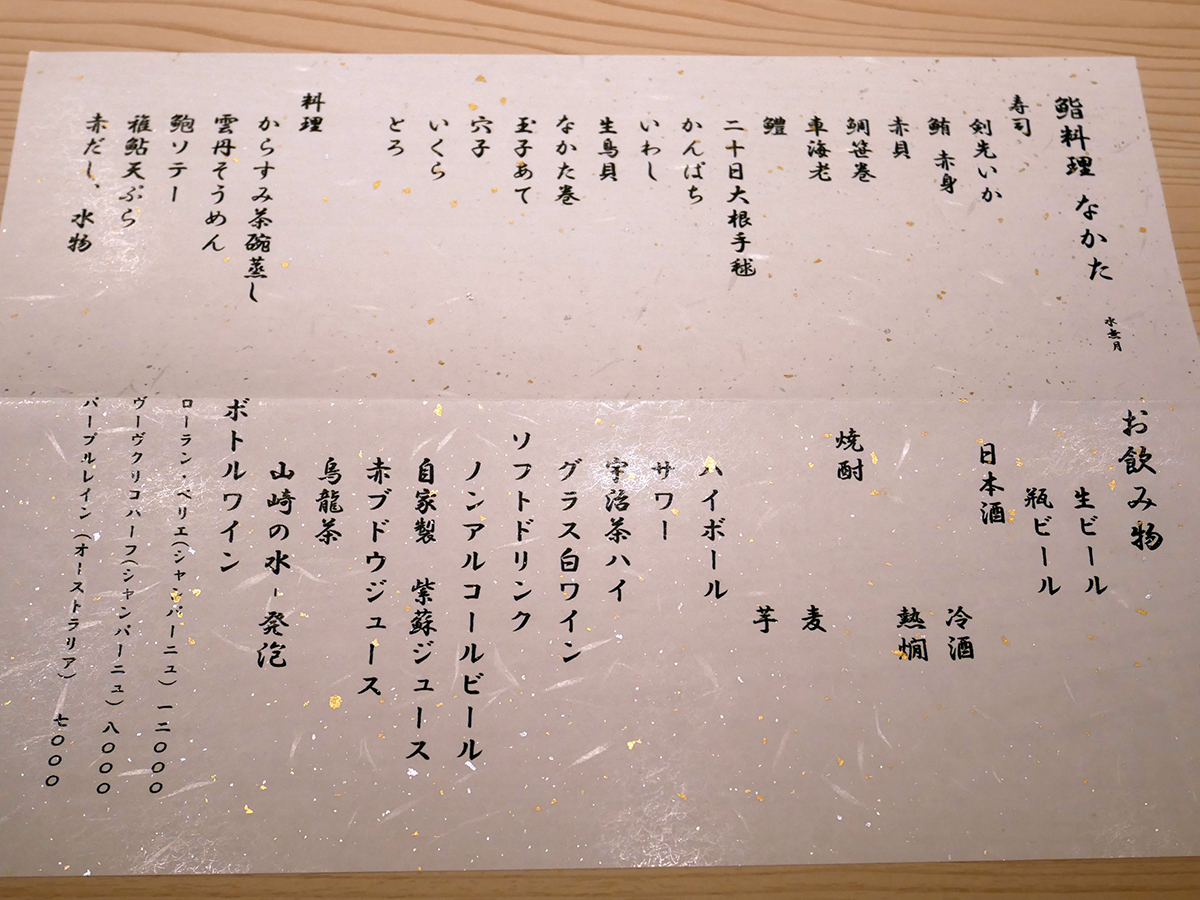 鮨料理 なかた
水無月
寿司
剣先いか
鮪 赤身
赤貝
鯛笹巻
車海老
鱧
二十日大根手毬
かんぱち
いわし
生鳥貝
なかた巻
玉子あて
穴子
いくら
とろ
料理
からすみ茶碗蒸し
雲丹そうめん
鮑ソテー
稚鮎天ぷら
赤だし、水物
お飲み物
生ビール
瓶ビール
日本酒
冷酒
熱燗
焼酎
麦
芋
ハイボール
サワー
宇治茶ハイ
グラス白ワイン
ソフトドリンク
ノンアルコールビール
自家製 紫蘇ジュース
赤ブドウジュース
烏龍茶
山崎の水 発泡
ボトルワイン
ローラン・ペリエ(シャンパーニュ) 一二〇〇〇
ヴーヴクリコハーフ(シャンパーニュ) 八〇〇〇
パープルレイン(オーストラリア) 七〇〇〇